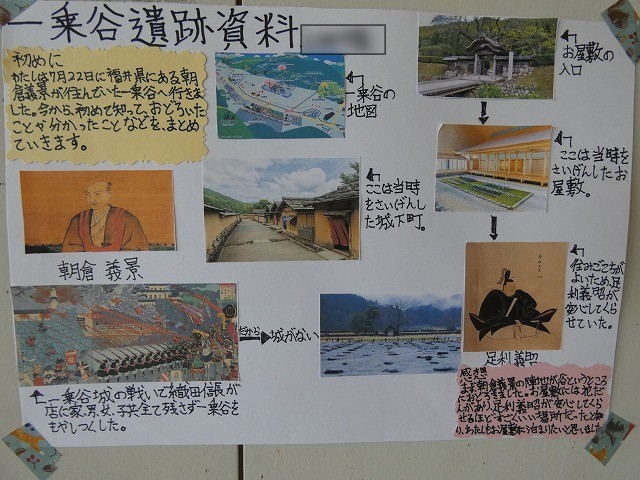 一乗谷遺跡資料
初めに
わたしは7月22日に福井県にある朝
倉義景が住んでいた一乗谷へ行きま
した。今から、初めて知って、おどろいた
ことや分かったことなどを、まとめ
ていきます。
一乗谷の
地図
お屋敷の
入口
ここは当時
をさいげんし
た城下町。
ここは当時を
さいげんしたお
屋敷。
朝倉 義景
住みごこちが
よいため、足
利義昭が
安心してくら
せていた。
足利義昭
だから
城がない
一乗谷城の戦いで織田信長が
店に家、男、女、子共全て残さず一乗谷を
もやしつくした。
感想
まず朝倉義景の陣地が谷というところ
におどろきました。お屋敷には花だ
んがあり、足利義昭が安心してくら
せるほどすごくいい場所だったと知
り、わたしもお屋敷に泊まりたいと思いました